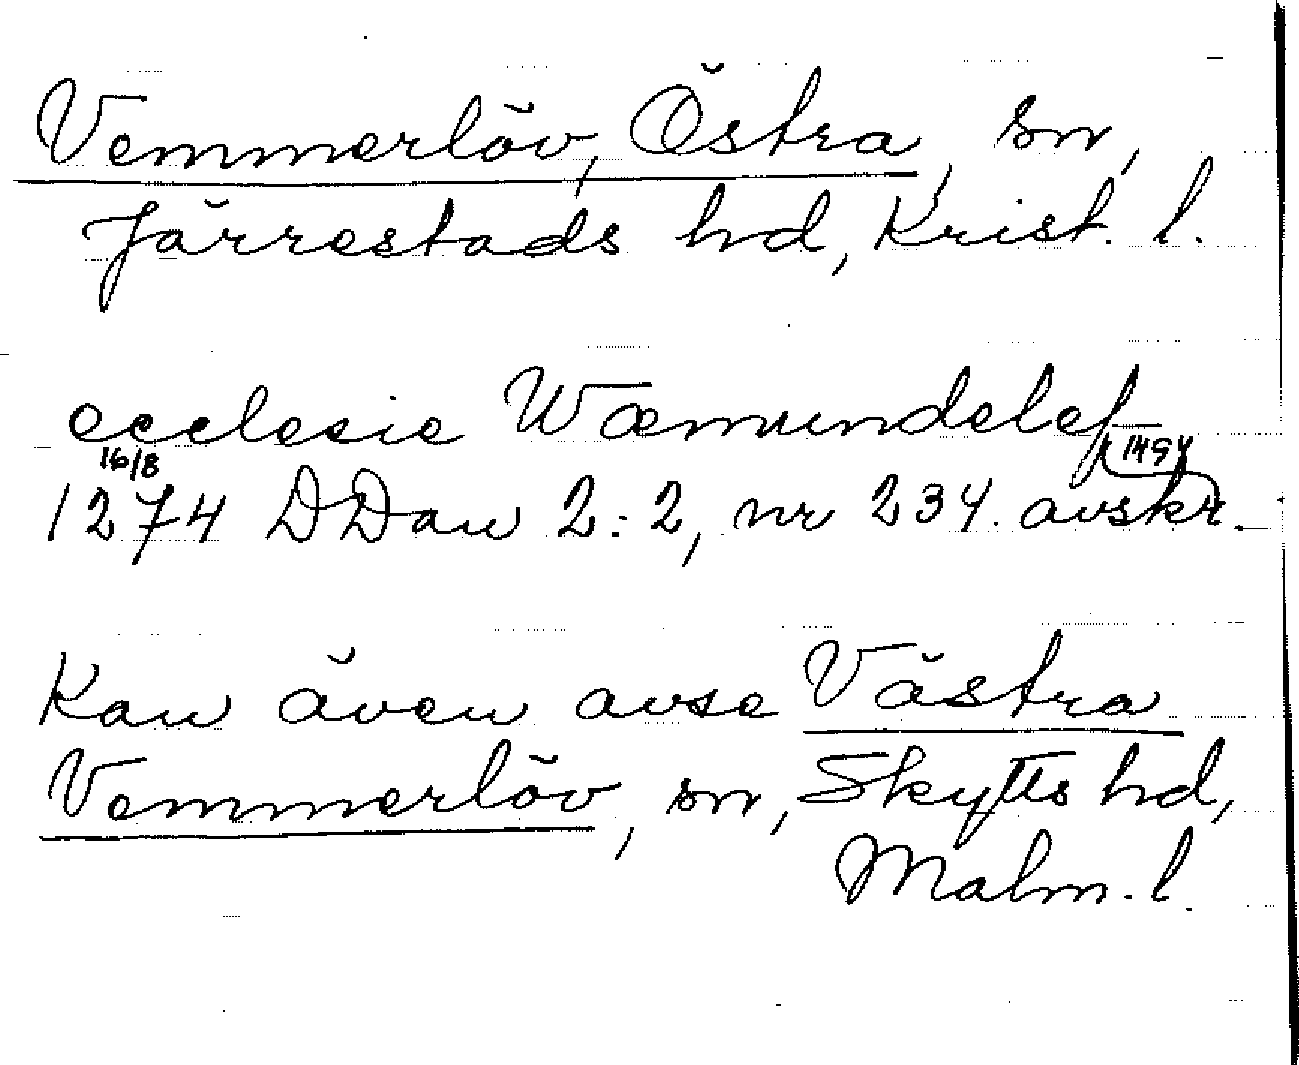 Vemmerlöv, Östra, sn,
Järrestads hd, Krist. l.
ecclesie Wæmundelef
16/8 1454
1274 DDan 2:2, nr 234 avskr.
Kan även avse Västra
Vemmerlöv, sn, Skytts hd,
Malm. l.